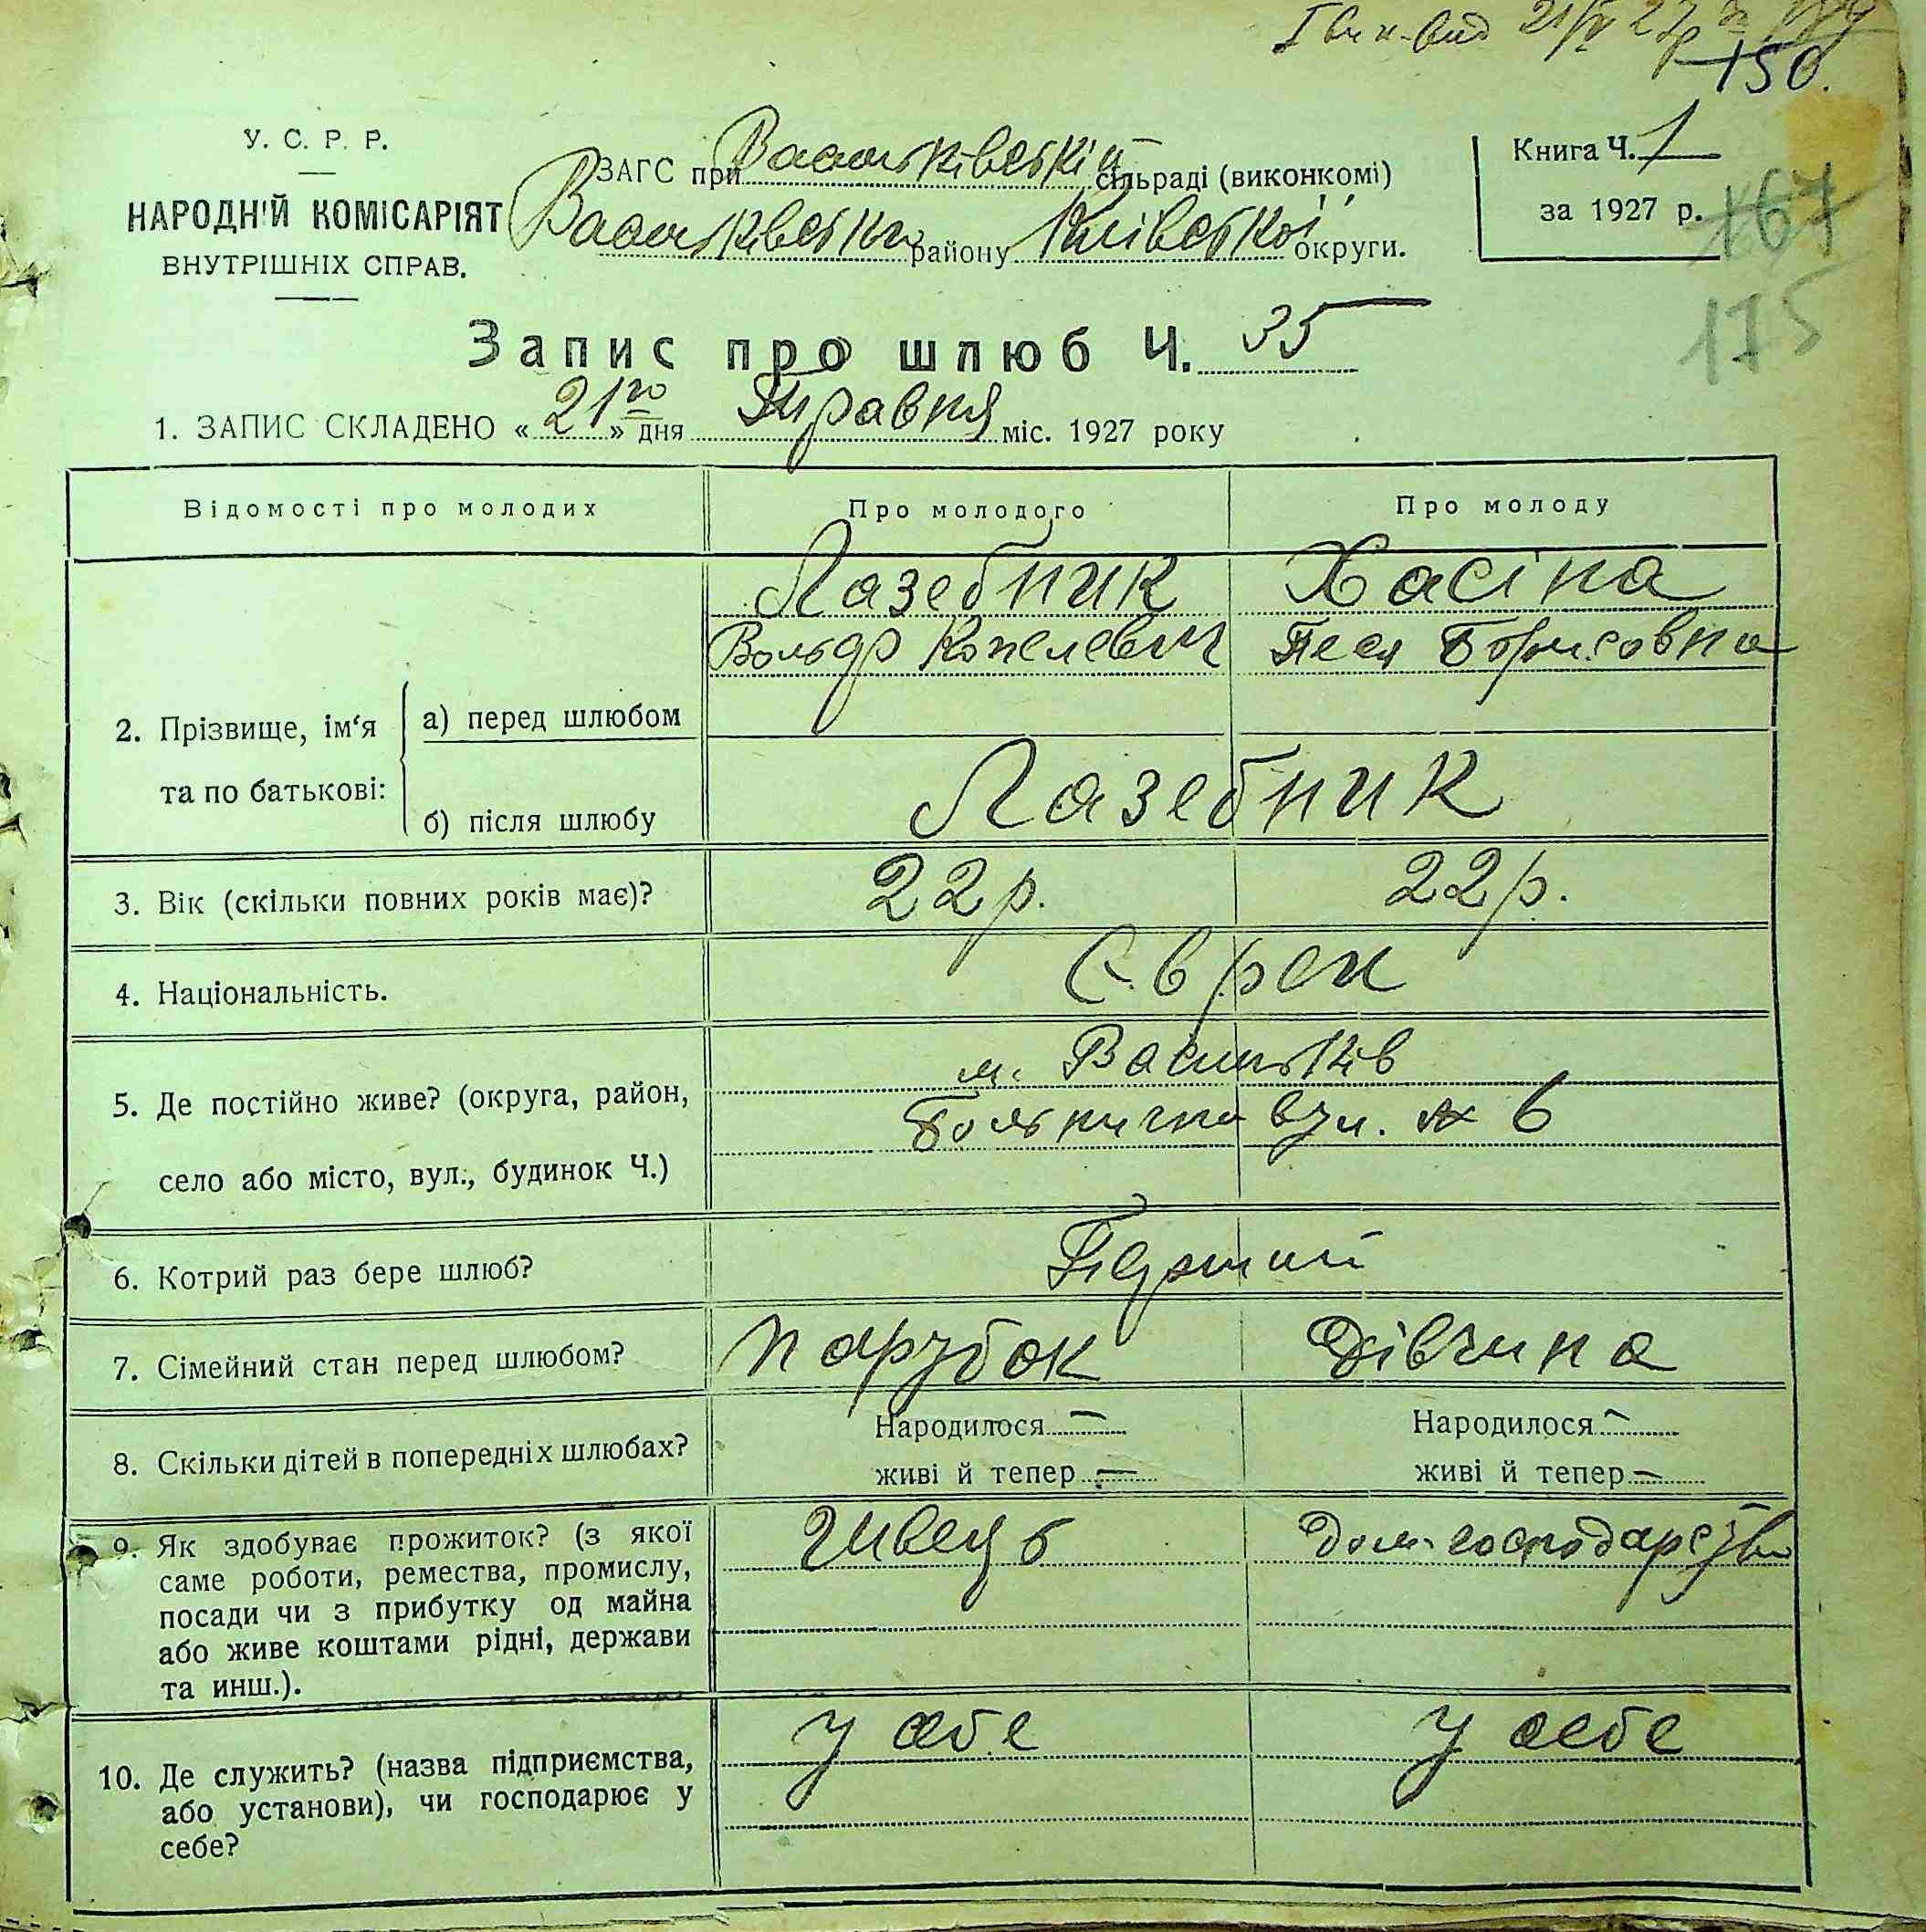 150.
У. С. Р. Р.
НАРОДНІЙ КОМІСАРІЯТ
ВНУТРІШНІХ СПРАВ.
ЗАГС при Васильківській сільраді (виконкомі)
Васильківського району Київської округи.
Книга Ч. 1
за 1927 р.
167
175
Запис про шлюб Ч. 35
1. ЗАПИС СКЛАДЕНО « 21го » дня Травня міс. 1927 року
Відомості про молодих Про молодого Про молоду
Лазебник Хасіна
Вольф Копелевич Песя Борисовна
2. Прізвище, ім‘я та по батькові:
а) перед шлюбом
б) після шлюбу Лазебник
3. Вік (скільки повних років має)? 22 р. 22 р.
4. Національність. Євреи
5. Де постійно живе? (округа, район, м. Васильків
село або місто, вул., будинок Ч.) Больнична вул. № 6
6. Котрий раз бере шлюб? Перший
7. Сімейний стан перед шлюбом? парубок Дівчина
8. Скільки дітей в попередніх шлюбах?
Народилося — Народилося —
живі й тепер — живі й тепер —
9. Як здобуває прожиток? (з якої Швець Дом. господарство
саме роботи, ремества, промислу,
посади чи з прибутку од майна
або живе коштами рідні, держави
та инш.).
10. Де служить? (назва підприємства, у себе у себе
або установи), чи господарює у
себе?